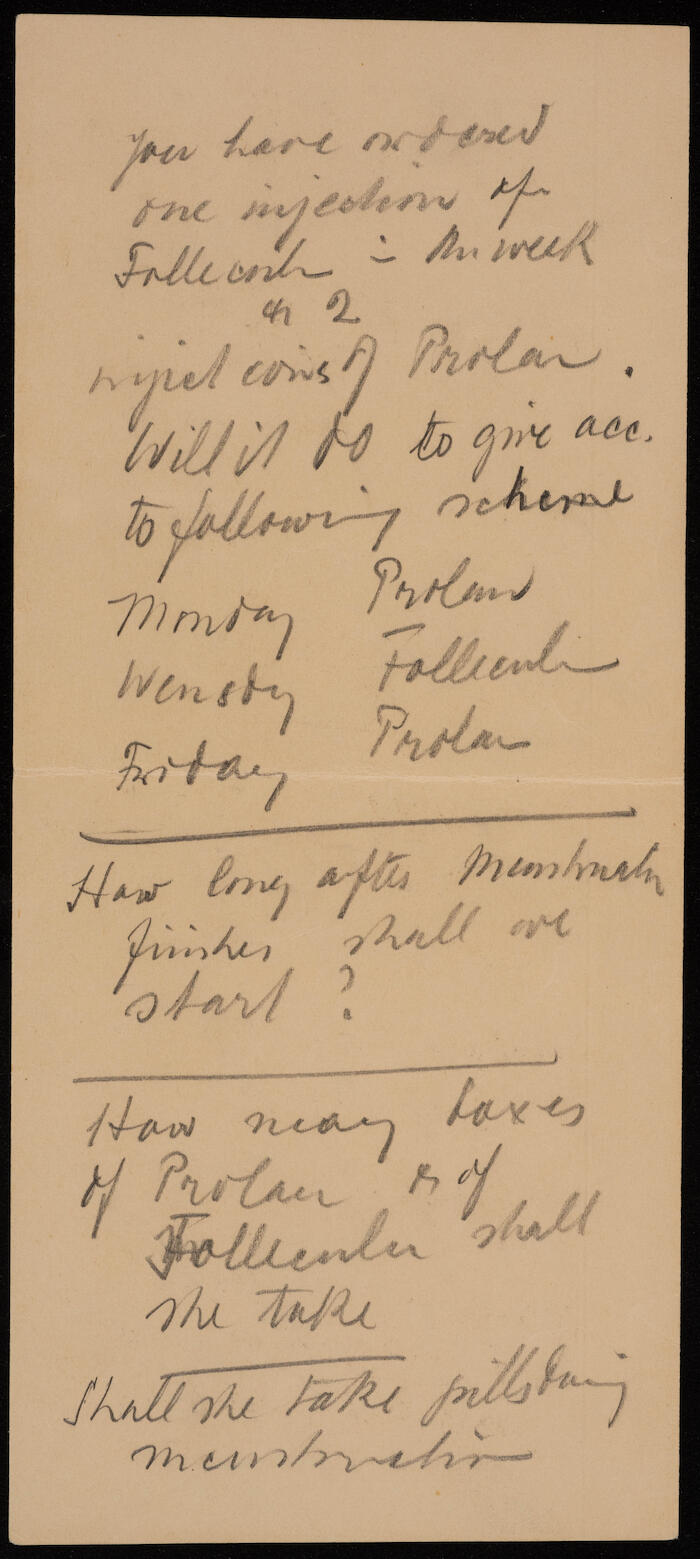 You have ordered
one injection of
Folleculin - in week
or 2
injections of Prolan.
Will it do to give acc.
to following scheme
Monday Prolan
Wensday Folleculin
Friday Prolan
How long after menstruation
finishes shall we
start ?
How many boxes
of Prolan & of
Folleculin shall
she take
Shall she take pills during
menstruation